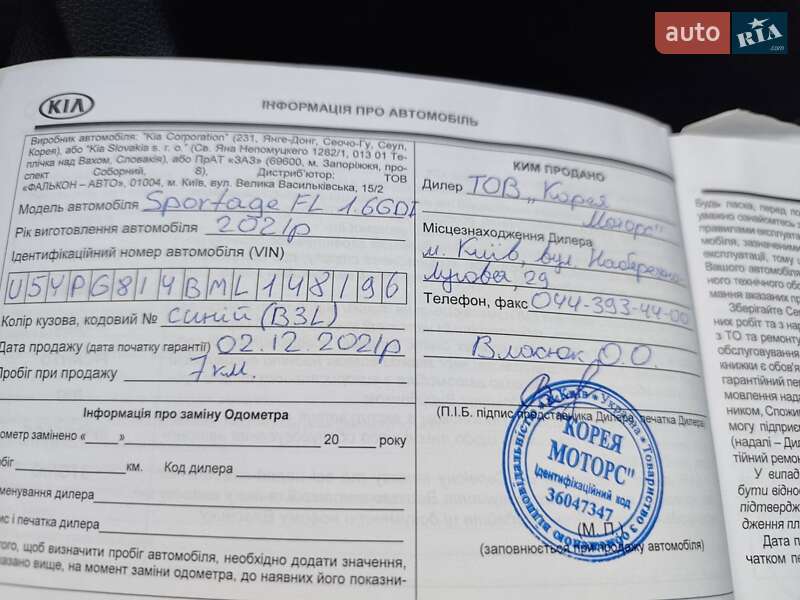 auto RIA
.com
KIA
ІНФОРМАЦІЯ ПРО АВТОМОБІЛЬ
Виробник автомобіля: "Kia Corporation" (231, Янге-Донг, Сеочо-Гу, Сеул,
Корея), або "Kia Slovakia s. r. o." (Св. Яна Непомуцкего 1282/1, 013 01 Те-
плічка над Вахом, Словакія), або ПрАТ «ЗАЗ» (69600, м. Запоріжжя, про-
спект Соборний, 8), Дистриб'ютор: ТОВ
«ФАЛЬКОН – АВТО», 01004, м. Київ, вул. Велика Васильківська, 15/2
Модель автомобіля Sportage FL 1.6GDI
Рік виготовлення автомобіля 2021р
Ідентифікаційний номер автомобіля (VIN)
U5YPG814BML148196
Колір кузова, кодовий № синій (B3L)
Дата продажу (дата початку гарантії) 02.12.2021р
Пробіг при продажу 7км.
Інформація про заміну Одометра
ометр замінено «___» 20___ року
біг км. Код дилера
менування дилера
ис і печатка дилера
того, щоб визначити пробіг автомобіля, необхідно додати значення,
казано вище, на момент заміни одометра, до наявних його показни-
КИМ ПРОДАНО
Дилер ТОВ "Корея
Моторс"
Місцезнаходження Дилера
м. Київ, вул. Набережно
Лугова, 29
Телефон, факс 044-393-44-00
Власюк О.О.
(П.І.Б. підпис представника Дилера, печатка Дилера)
Київ * Україна * Товариство з обмеженою відповідальністю
"КОРЕЯ
МОТОРС"
Ідентифікаційний код
36047347
(М. П.)
(заповнюється при продажу автомобіля)
Будь ласка, перед по
уважно ознайомтесь з
правилами експлуата
мобіля, зазначеними
експлуатації, тому
Вашого автомобіля
ного технічного обс
мання вказаних пр
Зберігайте Се
них робіт та з нар
з ТО та ремонту
обслуговування
книжки є обов'я
гарантійний пер
мовлення нада
ником, Спожи
могу підприєм
(надалі – Дил
тійний ремон
У випад
бути відно
підтвердж
дження пл
Дата п
чатком пе